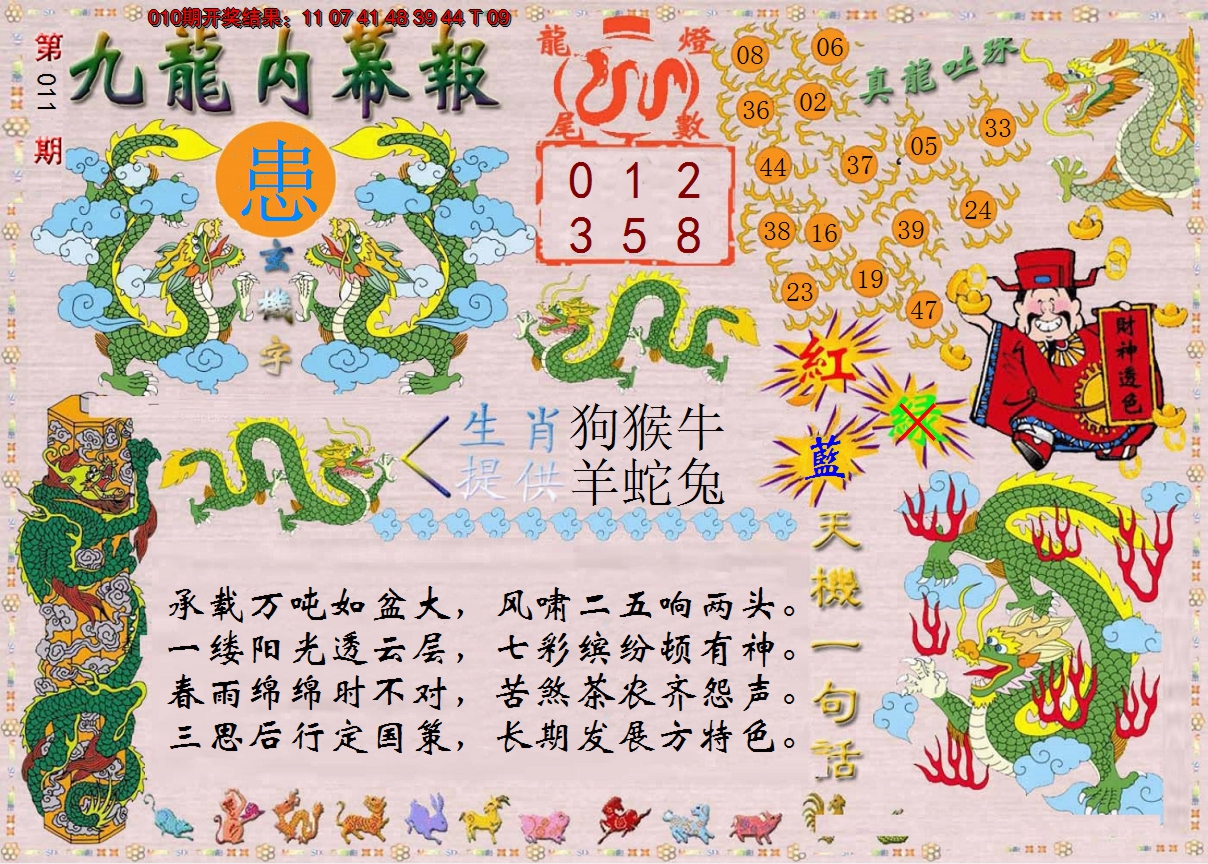 010期开奖结果：11 07 41 48 39 44 T 09
第011期
九龍内幕報
患
玄機字
龍燈尾數
0 1 2
3 5 8
真龍吐珠
08 06
36 02
44 37 05 33
38 16 39 24
23 19 47
財神透色
紅
绿
藍
生肖提供
狗猴牛
羊蛇兔
天機一句話
承载万吨如盆大，风啸二五响两头。
一缕阳光透云层，七彩缤纷顿有神。
春雨绵绵时不对，苦煞茶农齐怨声。
三思后行定国策，长期发展方特色。